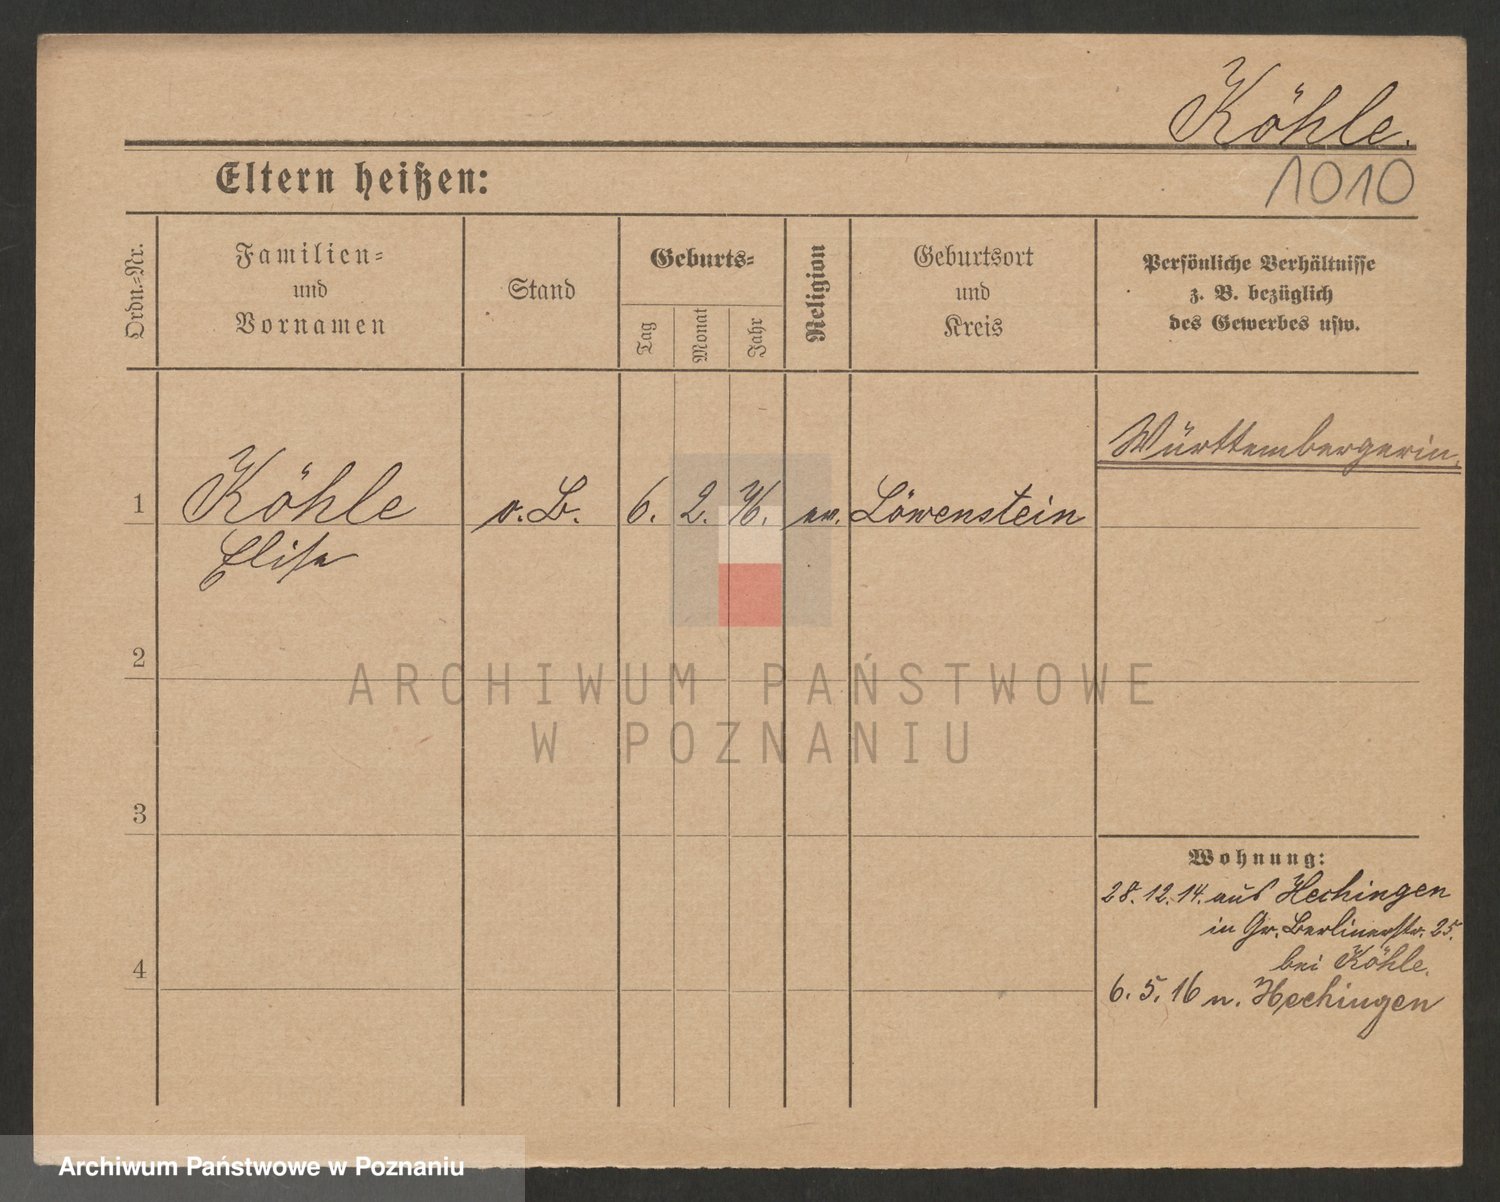 Köhle.
1010
Eltern heißen:
Ordn.-Nr.
Familien-
und
Vornamen
Stand
Geburts-
Tag
Monat
Jahr
Religion
Geburtsort
und
Kreis
Persönliche Verhältnisse
z. B. bezüglich
des Gewerbes usw.
Württembergerin.
1 Köhle o. B. 6. 2. 76. ev. Löwenstein
Elise
2
3
4
Wohnung:
28. 12. 14. aus Hechingen
in Gr. Berlinerstr. 25.
bei Köhle.
6. 5. 16 n. Hechingen
ARCHIWUM PAŃSTWOWE
W POZNANIU
Archiwum Państwowe w Poznaniu